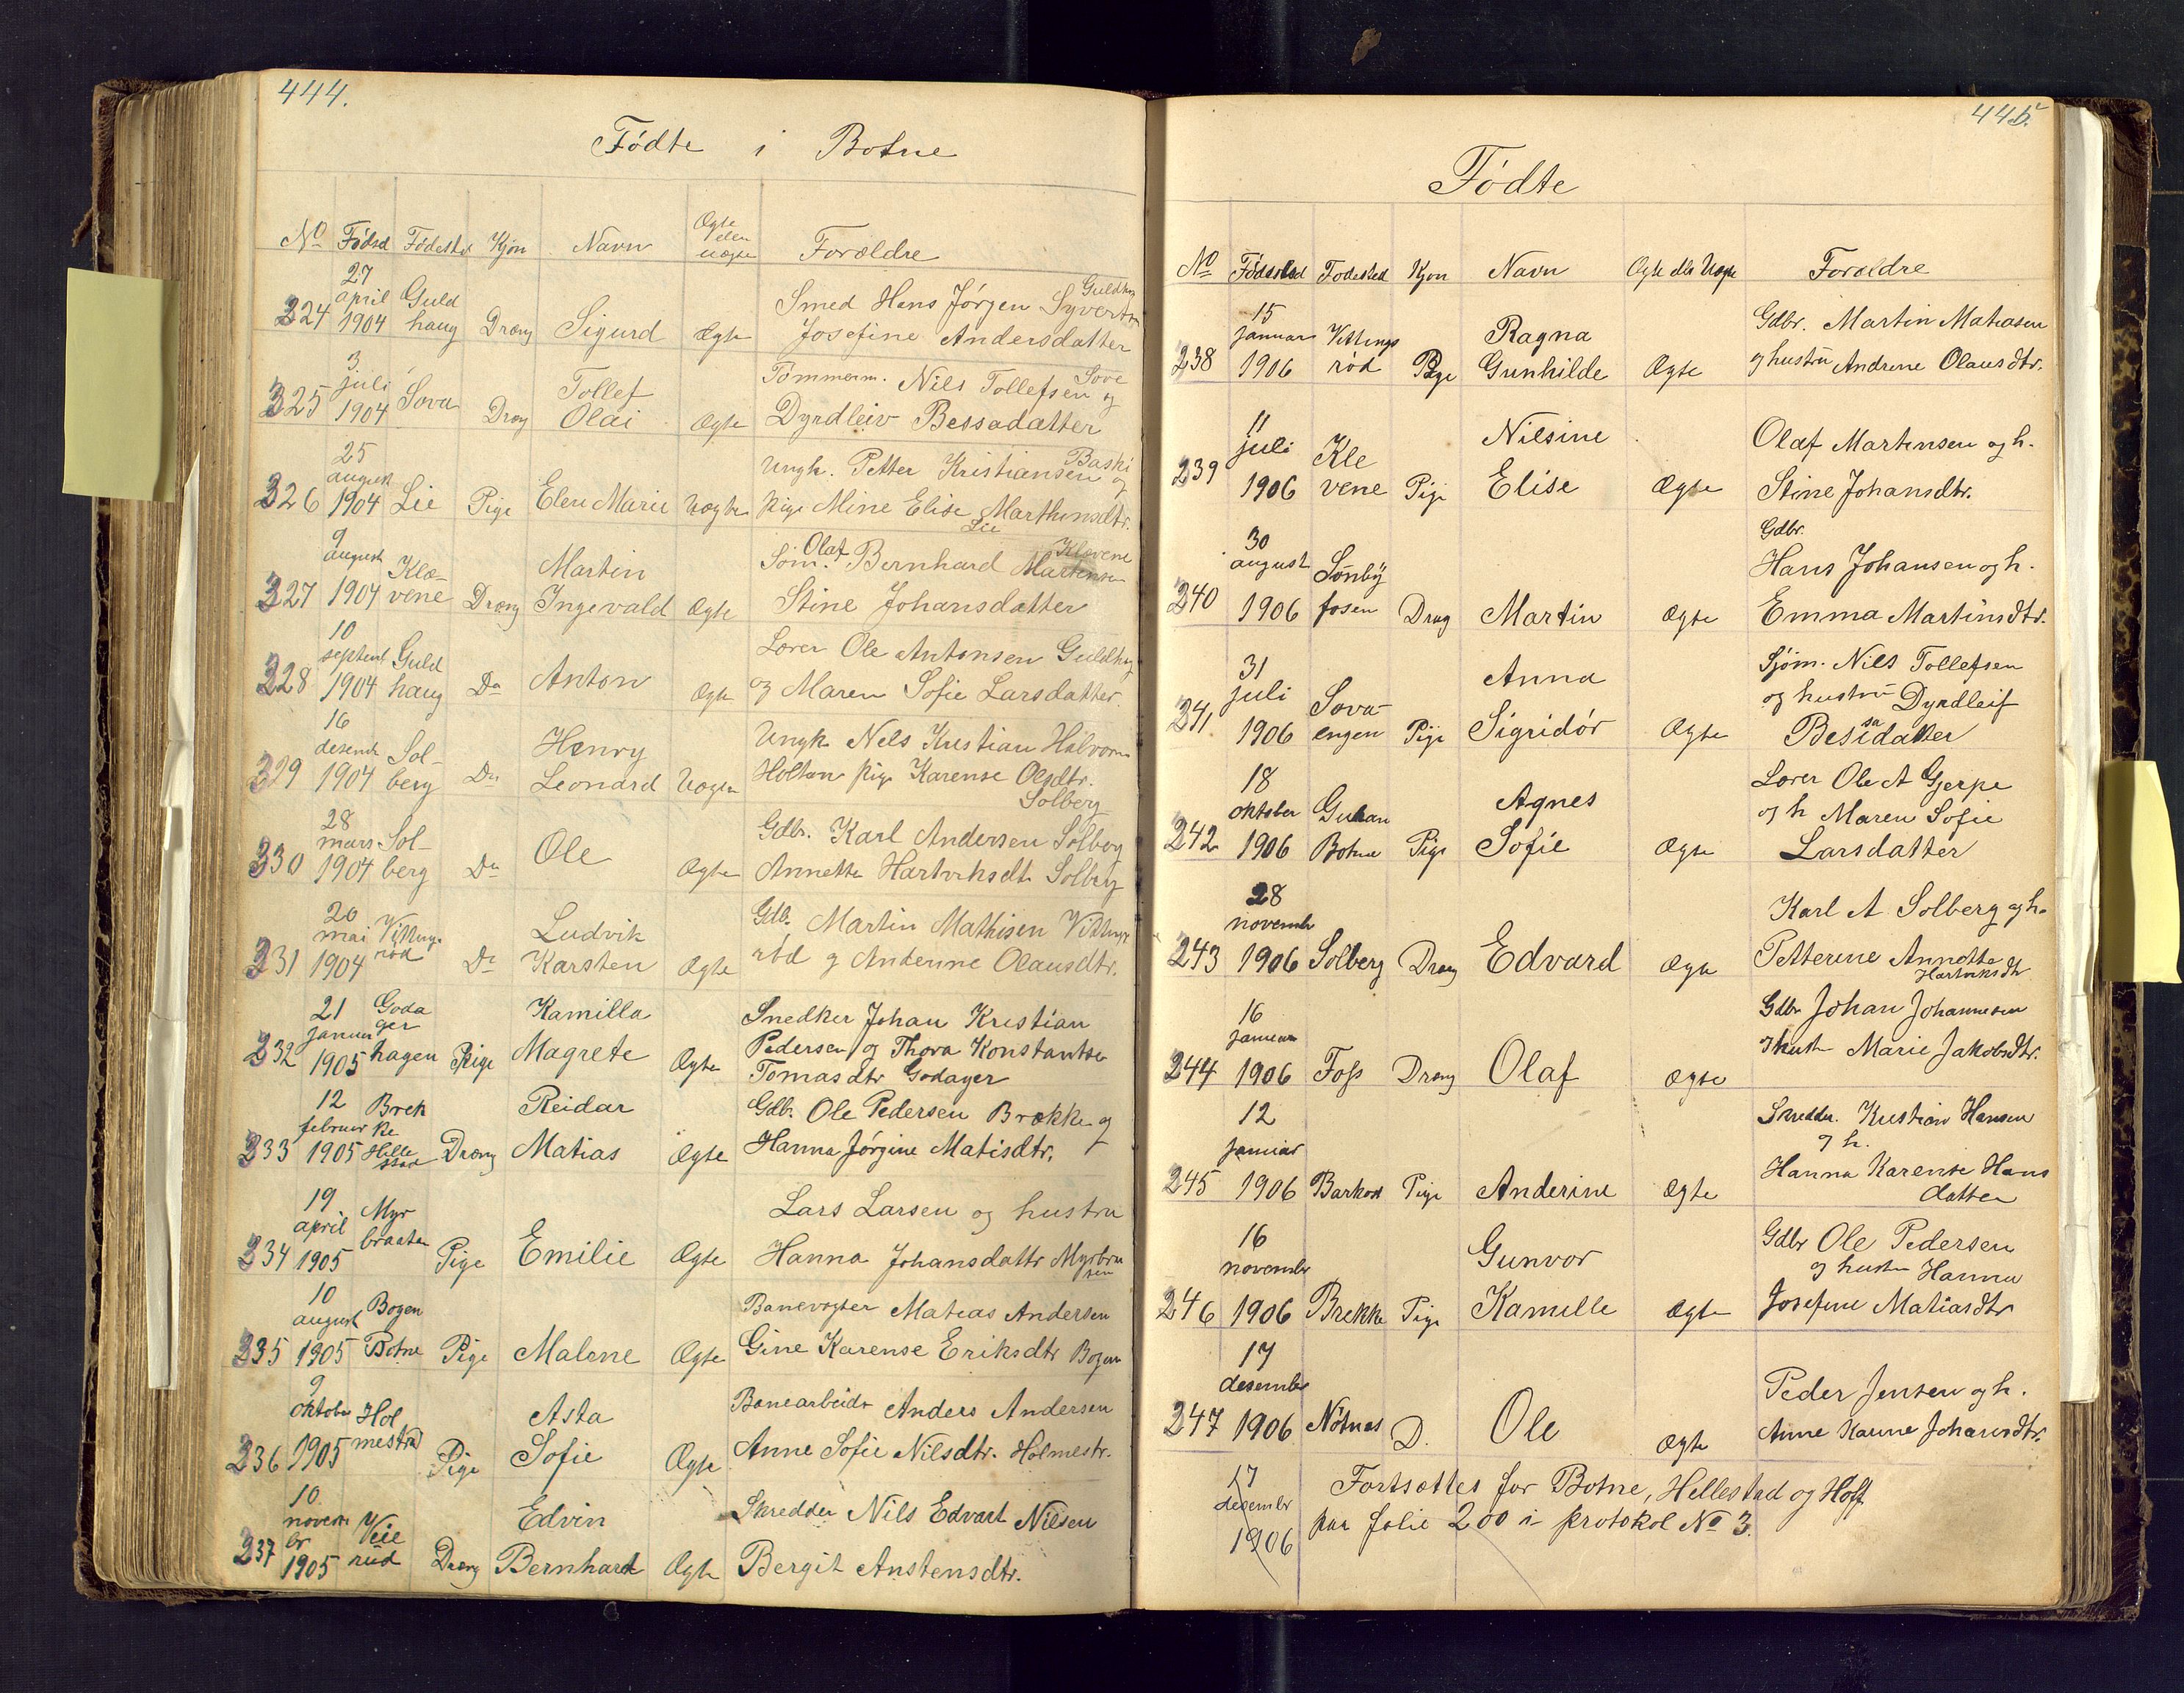 444.
Födte i Botne
No Födsd Födested Kjön Navn Ægte eller uægte Forældre
27 april 1904
224 Guld haug Dreng Sigurd Ægte Smed Hans Jörgen Syvertsen Guldhag
Josefine Andersdatter
3 juli 1904
225 Sova Dreng Tollef Olai Ægte Tömmerm. Nils Tollefsen Sove og
Dyrdleiv Bessadatter
25 august 1904
226 Lie Pige Elen Marie Uægte Ungk. Petter Kristiansen og
pige Mine Elise Marthinsdtr. Lie
9 august 1904
227 Klæ-vene Dreng Martin Ingevald Ægte Söm. Olaf Bernhard Martinsen Klævene
Stine Johansdatter
10 septemb 1904
228 Guld haug Do Anton Ægte Lærer Ole Antonsen Guldhag
og Maren Sofie Larsdatter.
16 desemb 1904
229 Sol-berg Do Henry Leonard Uægte Ungk Nels Kristian Halvorsen
Holtan pige Karense Olsdtr. Solberg
28 mars 1904
230 Sol-berg Do Ole Ægte Gdbr. Karl Andersen Solberg
Annette Hartviksdtr Solberg
20 mai 1904
231 Vittings rød Do Ludvik Karsten Ægte Gdb. Martin Mathisen Vittings
rød og Anderine Olausdtr.
21 januar 1905
232 Goda ger hagen Pige Kamilla Magrete Ægte Snedker Johan Kristian
Pedersen og Thora Konstantse
Tomasdtr Godager
12 februar 1905
233 Brek ke Hille stad Dreng Reidar Matias Ægte Gdb. Ole Pedersen Brække og
Hanna Jörgine Matisdtr.
19 april 1905
234 Myr braaten Pige Emilie Ægte Lars Larsen og hustru
Hanna Johansdattr Myrbraaten
10 august 1905
235 Bogen Botne Pige Malene Ægte Banevogter Mateas Andersen
Gine Karense Eriksdtr Bogen
9 oktober 1905
236 Hol mestrd Pige Asta Sofie Ægte Banearbeidr Anders Andersen
Anne Sofie Nilsdtr. Holmestr.
10 novem br 1905
237 Veie rud Dreng Edvin Bernhart Ægte Skredder Nils Edvart Nilsen
Bergit Anstensdtr.
445.
Födte
No Födselsd Födested Kjön Navn Ægte eller Uægte Forældre
15 januar 1906
238 Vittings rød Pige Ragna Gunhilde Ægte Gdbr. Martin Matiasen
og hustru Andrine Olausdtr.
11 juli 1906
239 Kle vene Pige Nilsine Elise Ægte Olaf Martensen og h.
Stine Johansdtr.
30 august 1906
240 Sönby fosen Dreng Martin Ægte Gdbr.
Hans Johansen og h.
Emma Martinsdtr.
31 juli 1906
241 Sova-engen Pige Anna Sigridör Ægte Sjöm. Nils Tollefsen
og hustru Dyrdleif
Bessadatter
18 oktober 1906
242 Botne Pige Agnes Sofie Ægte Lærer Ole A Gjerpe
og h Maren Sofie
Larsdatter
28 november
243 1906 Solberg Dreng Edvard Ægte Karl A Solberg og h.
Petterine Annette
Hartviksdtr
16 januar
244 1906 Foss Dreng Olaf Ægte Gdbr Johan Johannesen
og hustr Marie Jakobsdtr.
12 januar
245 1906 Barkost Pige Anderine Ægte Skredder. Kristian Hansen
og h.
Hanna Karense Hans
datter
16 november
246 1906 Brekke Pige Gunvor Kamille Ægte Gdbr Ole Pedersen
og hustr Hanna
Josefine Matiasdtr
17 desember
247 1906 Nötnes D. Ole Ægte Peder Jensen og h.
Anne Karine Johansdtr.
17 desembr 1906
Fortsættes for Botne, Hellestad og Hoff
paa folie 200 i protokol No 3.